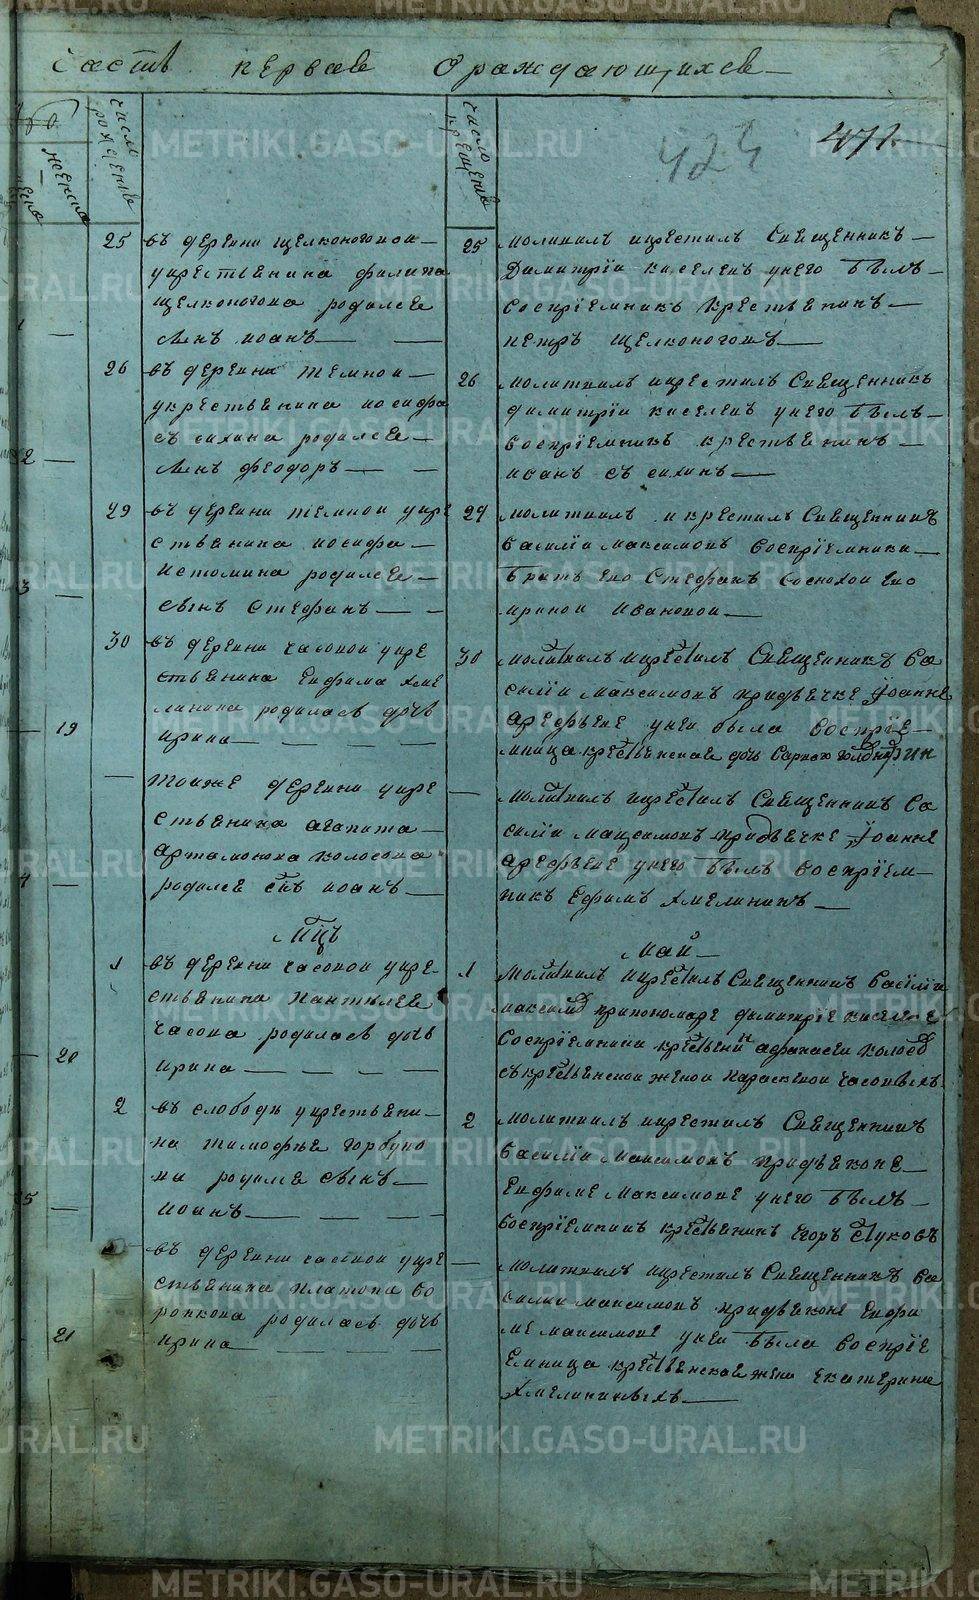 часть первае ораждающихсе
число рождение
число крещение
424
471
25 въ деревни щелконоговой
укрестьенина филипа
щелконогова родилсе
сынъ иоанъ
25 молитвилъ икрестилъ Священникъ
Димитрїи киселевъ унего былъ
воспрїемникъ крестьенинъ
петръ щелконоговъ
26 въ деревни темнои
укрестьенина иосифа
родилсе
сынъ феодоръ
26 молитвилъ икрестилъ Священникъ
димитрїи киселевъ унего былъ
воспрїемникъ крестьенинъ
иванъ
29 въ деревни темнои укре
стьенина иосифа
истомина родилсе
сынъ стефанъ
29 молитвилъ и крестилъ Священникъ
василїи максимовъ воспрїемники
братъ ево Стефанъ Сосновои ево
ириной ивановой
30 въ деревни часовои укре
стьенина ефима хме
линина родилась дочь
19 ирина
30 молитвилъ икрестилъ Священникъ ва
силїи максимовъ придьечке Iоанне
арефьеве унеи была воспрїе
мница крестьенскае дочь
тоиже деревни укре
стьенина агапита
артамонова колосова
родилсе сынъ иоанъ
молитвилъ икрестилъ Священникъ ва
силїи максимовъ придьечке Iоанне
арефьеве унего былъ воспрїем
никъ Ефимъ Хмелининъ
май
1 въ деревни часовои укре
стьенина пантелее
часова родилась дочь
20 ирина
1 молитвилъ икрестилъ Священникъ василїи
максимовъ припономаре димитрїе киселеве
воспрїемники крестьенинъ афанасеи колосовъ
съкрестьенской женой параскевой часовыхъ
2 въ слободе укрестьени
на тимофее горбуно
ва родилсе сынъ
иоанъ
2 молитвилъ икрестилъ Священникъ
василїи максимовъ придьеконе
Ефиме максимове унего былъ
воспрїемникъ крестьенинъ Егоръ Стуковъ
въ деревни часовои укре
стьенина платона во
ронкова родилась дочь
21 ирина
молитвилъ икрестилъ Священникъ ва
силїи максимовъ придьеконе Ефи
ме максимове унеи была воспрїе
емница крестьенскае жена екатерина
Хмелининыхъ
METRIKI.GASO-URAL.RU